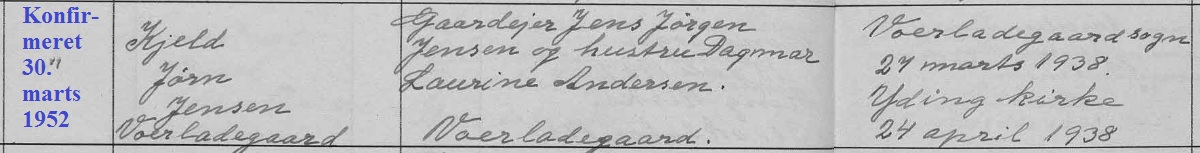 Konfir-
meret
30."
marts
1952
Kjeld
Jørn
Jensen
Voerladegaard
Gaardejer Jens Jørgen
Jensen og hustru Dagmar
Laurine Andersen.
Voerladegaard.
Voerladegaard sogn
27 marts 1938.
Yding kirke
24 april 1938